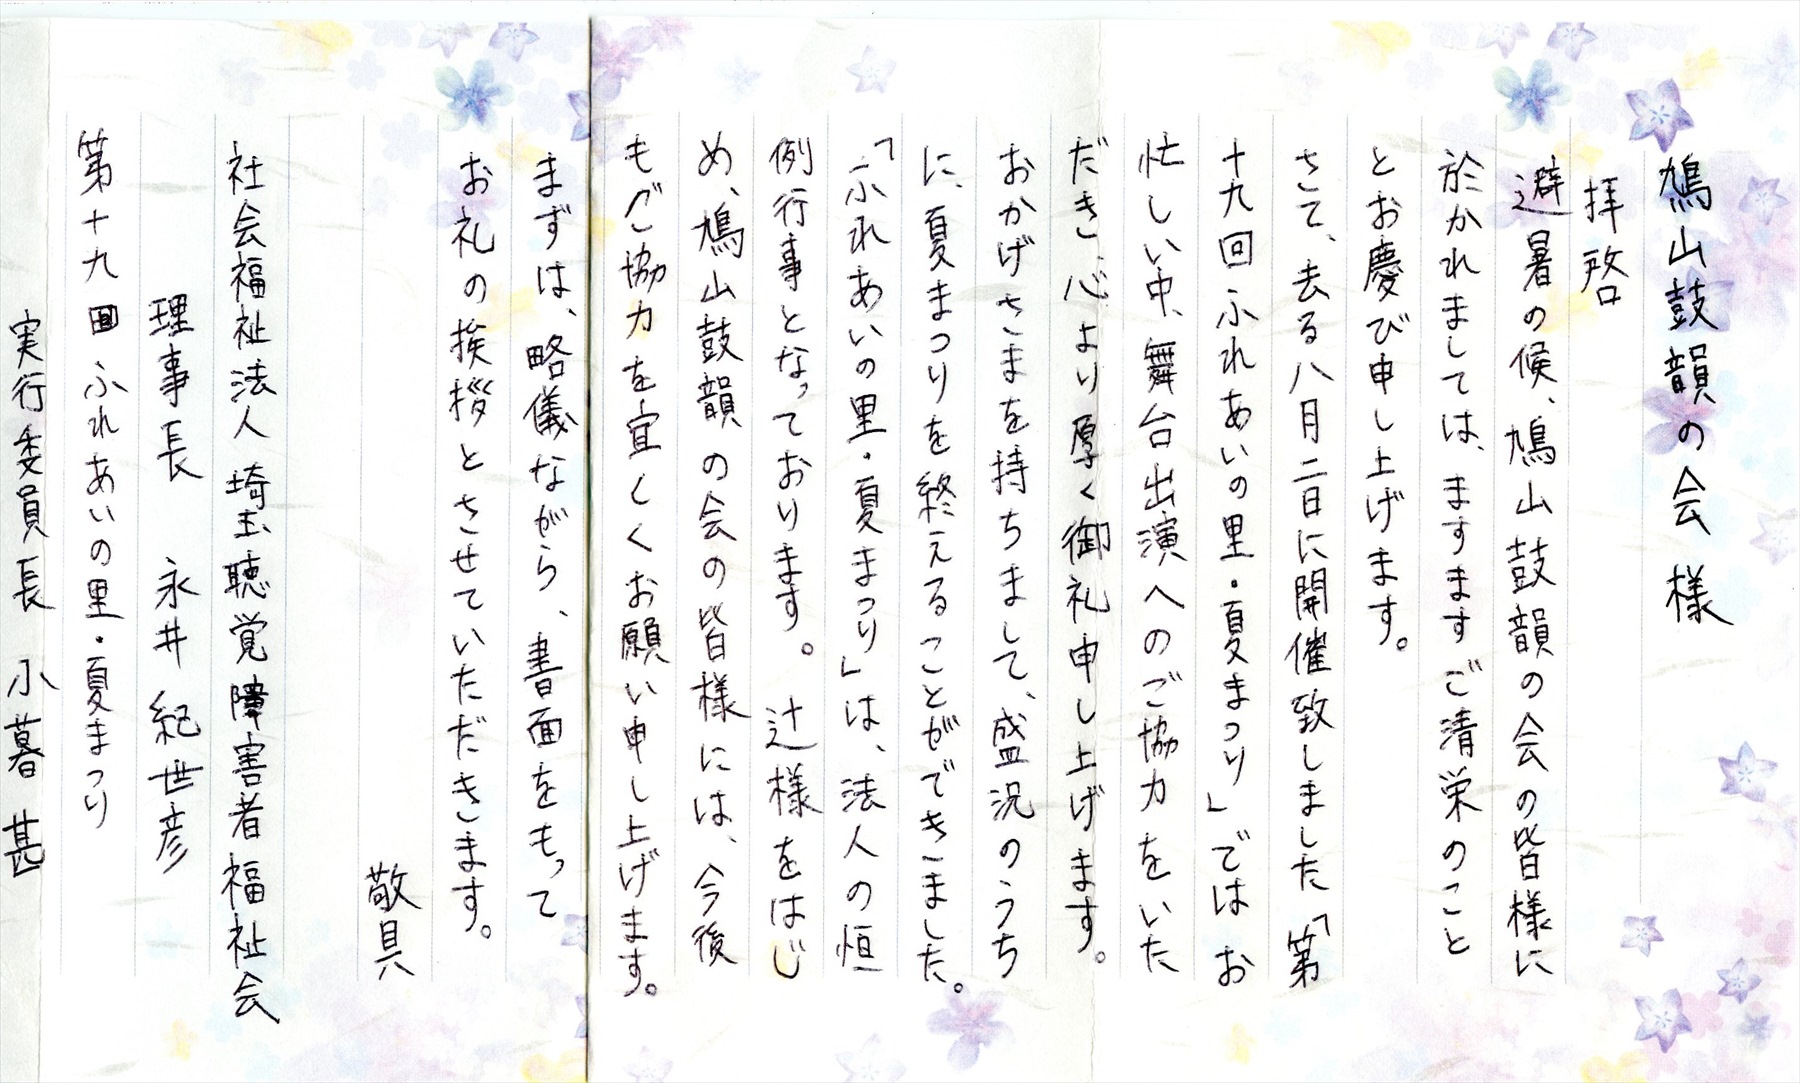 鳩山鼓韻の会 様
拝啓
避暑の候、鳩山鼓韻の会の皆様に
於かれましては、ますますご清栄のこと
とお慶び申し上げます。
さて、去る八月二日に開催致しました「第
十九回ふれあいの里・夏まつり」では お
忙しい中、舞台出演へのご協力をいた
だき、心より厚く御礼申し上げます。
おかげさまを持ちまして、盛況のうち
に、夏まつりを終えることができました。
「ふれあいの里・夏まつり」は、法人の恒
例行事となっております。 辻様をはじ
め、鳩山鼓韻の会の皆様には、今後
もご協力を宜しくお願い申し上げます。
まずは、略儀ながら、書面をもって
お礼の挨拶とさせていただきます。
敬具
社会福祉法人 埼玉聴覚障害者福祉会
理事長 永井紀世彦
第十九回 ふれあいの里・夏まつり
実行委員長 小暮 甚